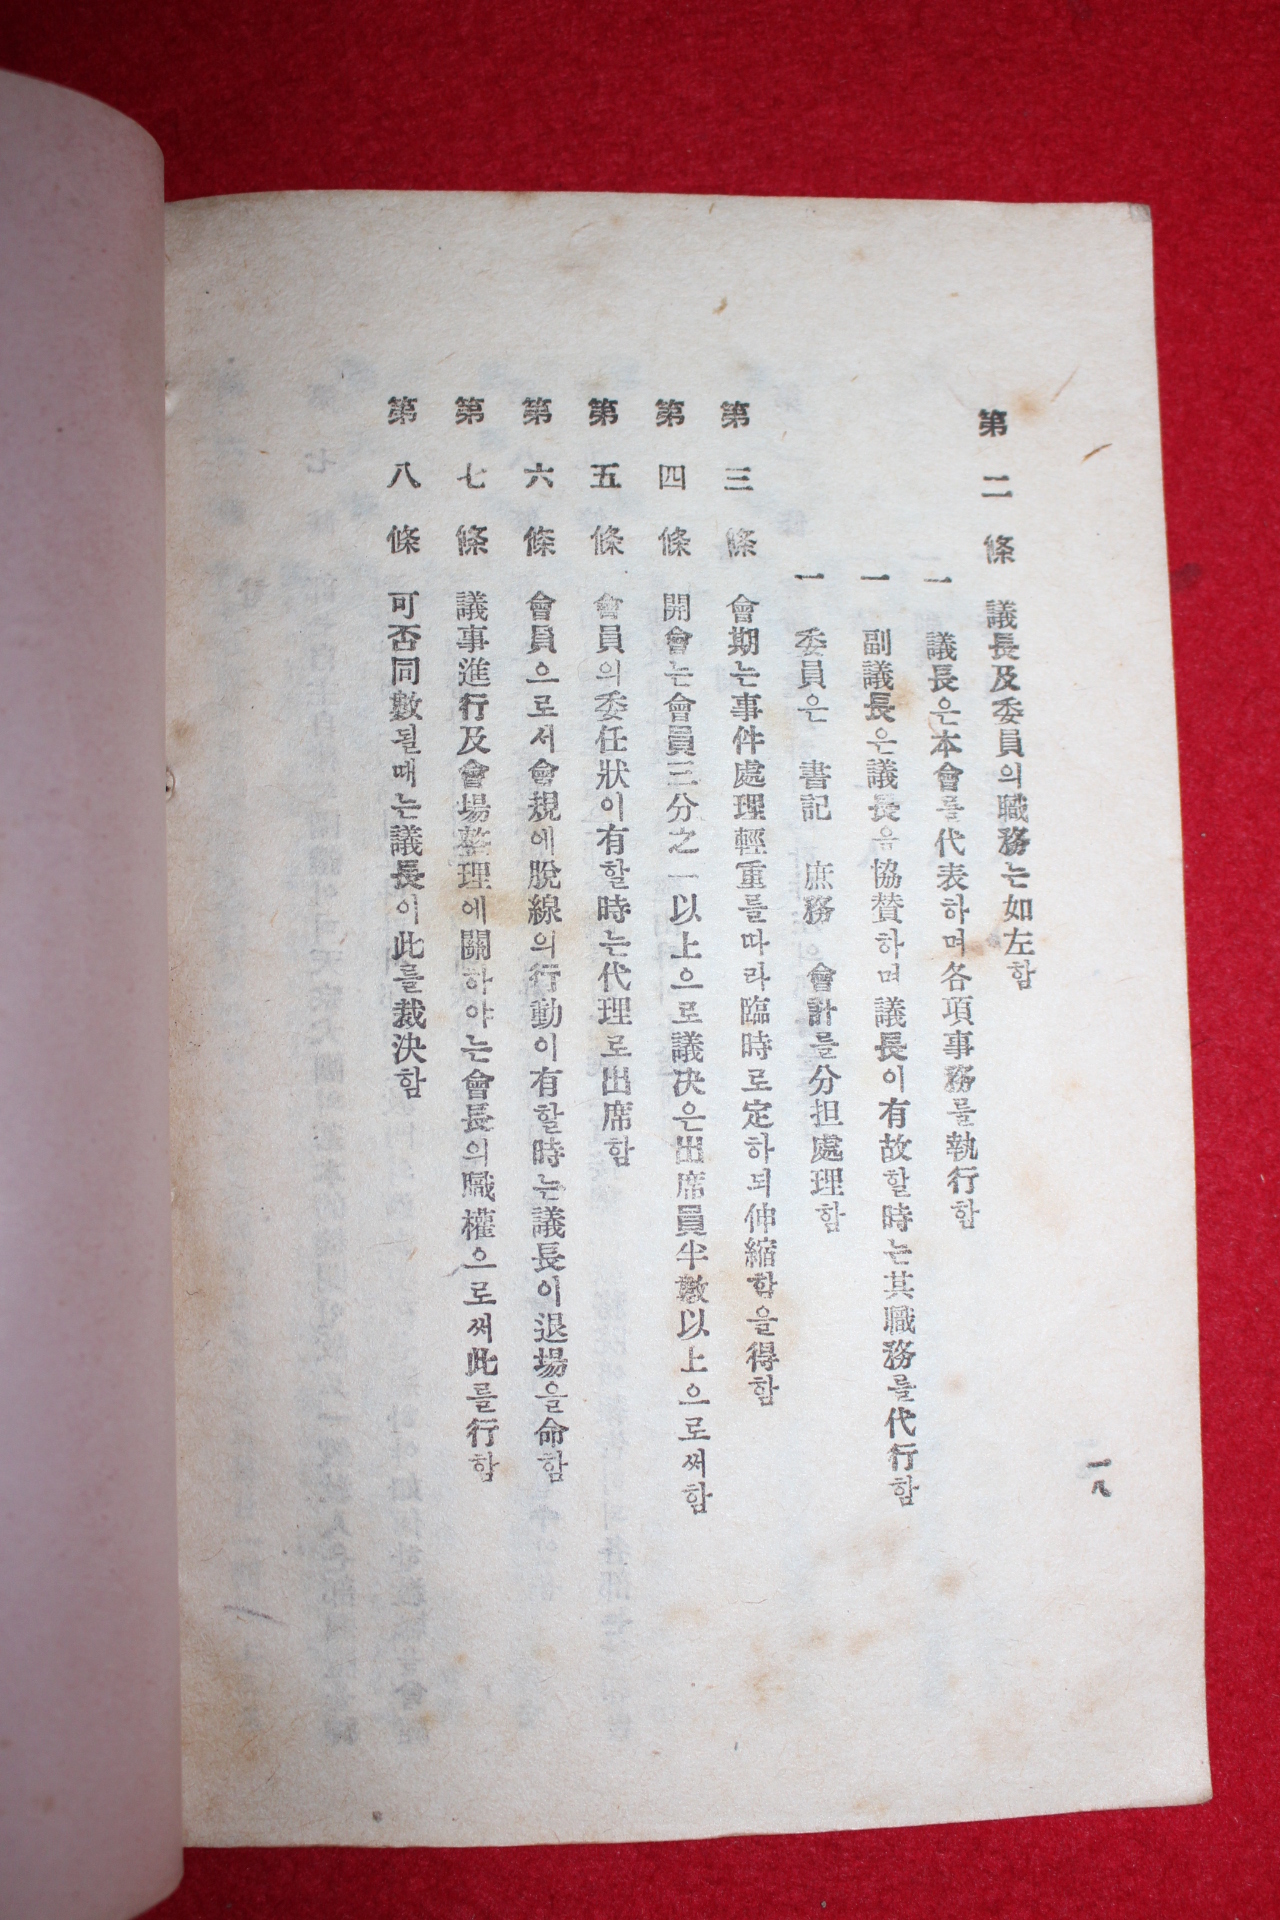 第二條 議長及委員의職務는如左함
一 議長은本會를代表하며各項事務를執行함
一 副議長은議長을協贊하며議長이有故할時는其職務를代行함
一 委員은 書記 庶務 會計를分担處理함
第三條 會期는事件處理輕重를따라臨時로定하되伸縮함을得함
第四條 開會는會員三分之一以上으로議決은出席員半數以上으로써함
第五條 會員의委任狀이有할時는代理로出席함
第六條 會員으로서會規에脫線의行動이有할時는議長이退場을命함
第七條 議事進行及會場整理에關하야는會長의職權으로써此를行함
第八條 可否同數될때는議長이此를裁決함
一八